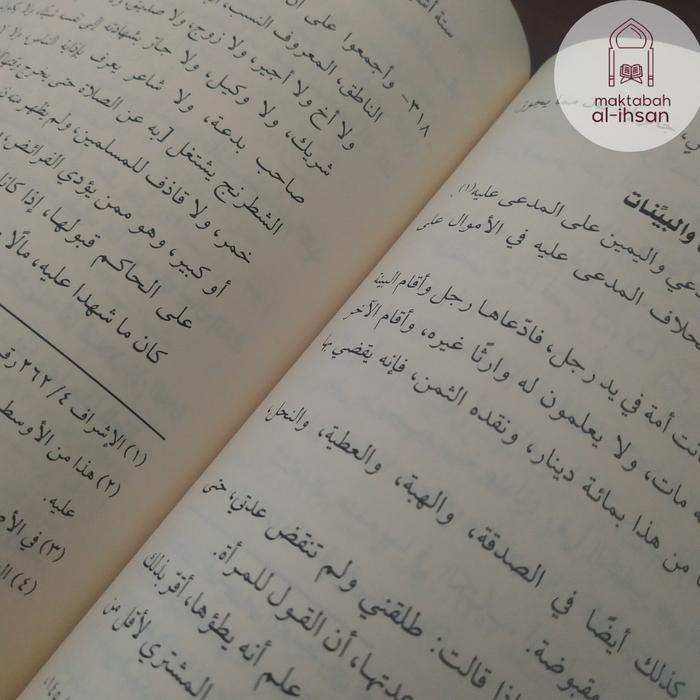 ٣١٨- وأجمعوا على أن
الناطق، المعروف النسب،
ولا أخ ولا أجير، ولا زوج، ولا
شريك، ولا وكيل، ولا جارّ بشهادته إلى
صاحب بدعة، ولا شاعر يعرف بإذاية الناس، ولا
الشطرنج يشتغل [به عن الصلاة حتى يخرج وقتها
خمر، ولا قاذف للمسلمين، ولم يظهر منه
أو كبير، وهو ممن يؤدي الفرائض،
على الحاكم قبولها، إذا كانا
كان ما شهدا عليه، مالًا
(١) الإشراف ٤/ ٢٦٢
(٢) هذا من الأوسط
عليه.
(٣) في
(٤)
maktabah
al-ihsan
والبيِّنات
واليمين على المدعى عليه(١).
المدعى عليه في الأموال على
أمة في يد رجل، فادّعاها رجل وأقام البينة
مات، ولا يعلمون له وارثًا غيره، وأقام الآخر
من هذا بمائة دينار، ونقده الثمن، فإنه يقضي بها
كذلك أيضًا في الصدقة، والهبة، والعطية، والنحل،
مقبوضة.
قالت: طلقني ولم تنقض عدتي، حتى
عدتها، أن القول للمرأة.
علم أنه يطؤها، أقر بذلك
المشتري لأقل من